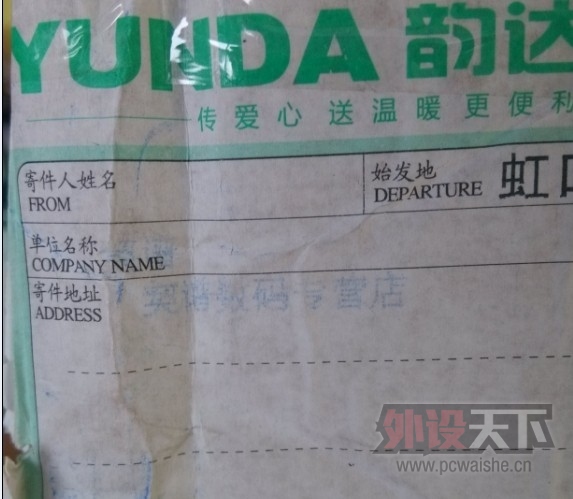 YUNDA 韵达
传爱心 送温暖 更便利
寄件人姓名
FROM
始发地
DEPARTURE
虹口
单位名称
COMPANY NAME
数码专营店
寄件地址
ADDRESS
外设天下
www.pcwaishe.cn